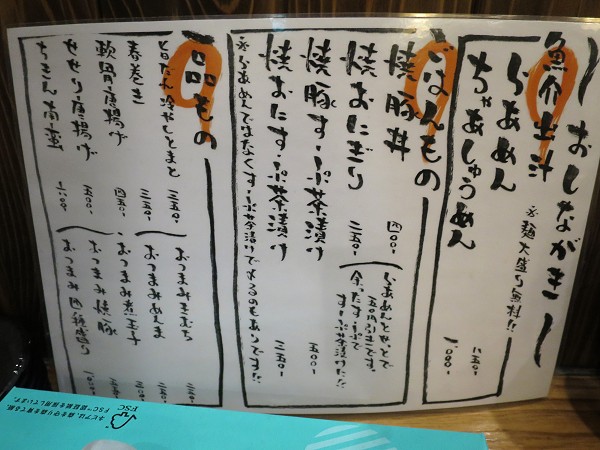 おしながき
魚介出汁
らあめん 八五〇-
ちゃあしゅうめん 一、〇〇〇-
※麺大盛り無料!!
ごはんもの
焼豚丼 四〇〇-
焼おにぎり 二五〇-
焼豚すーぷ茶漬け 五〇〇-
焼おにすーぷ茶漬け 三五〇-
らあめんとせっとで
五〇円引きです。
余ったすーぷで
すーぷ茶漬けに!!
※らあめんではなくすーぷ茶漬けで〆るのもありです!!
一品もの
冷やしとまと 三五〇-
春巻き 三五〇-
軟骨唐揚げ 四五〇-
せせり唐揚げ 五〇〇-
ちきん南蛮
おつまみきむち
おつまみめんま
おつまみ煮玉子
おつまみ焼豚
おつまみ四種盛り
FSC